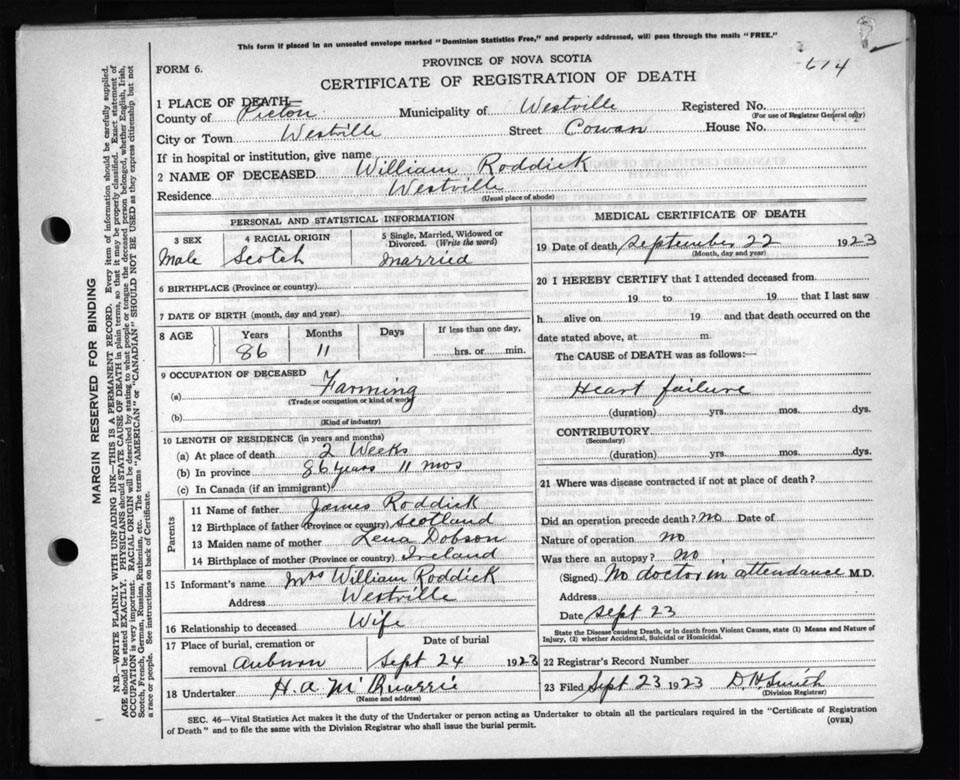 This form if placed in an unsealed envelope marked "Dominion Statistics Free," and properly addressed, will pass through the mails "FREE."
614
PROVINCE OF NOVA SCOTIA
FORM 6.
CERTIFICATE OF REGISTRATION OF DEATH
1 PLACE OF DEATH
County of Pictou Municipality of Westville Registered No.
(For use of Registrar General only)
City or Town Westville Street Cowan House No.
If in hospital or institution, give name
2 NAME OF DECEASED William Roddick
Residence Westville
(Usual place of abode)
PERSONAL AND STATISTICAL INFORMATION
3 SEX 4 RACIAL ORIGIN 5 Single, Married, Widowed or Divorced. (Write the word)
Male Scotch married
6 BIRTHPLACE (Province or country)
7 DATE OF BIRTH (month, day and year)
8 AGE Years Months Days If less than one day,
86 11 hrs. or min.
9 OCCUPATION OF DECEASED
(a) Farming
(Trade or occupation or kind of work)
(b)
(Kind of industry)
10 LENGTH OF RESIDENCE (in years and months)
(a) At place of death 2 Weeks
(b) In province 86 years 11 mos
(c) In Canada (if an immigrant)
Parents
11 Name of father James Roddick
12 Birthplace of father (Province or country) Scotland
13 Maiden name of mother Lena Dobson
14 Birthplace of mother (Province or country) Ireland
15 Informant's name Mrs William Roddick
Address Westville
16 Relationship to deceased Wife
17 Place of burial, cremation or removal Auburn
Date of burial Sept 24 1923
18 Undertaker H. A. McQuarrie
(Name and address)
MEDICAL CERTIFICATE OF DEATH
19 Date of death September 22 1923
(Month, day and year)
20 I HEREBY CERTIFY that I attended deceased from
19 to 19 that I last saw
h alive on 19 and that death occurred on the
date stated above, at m.
The CAUSE of DEATH was as follows:—
Heart failure
(duration) yrs. mos. dys.
CONTRIBUTORY
(Secondary)
(duration) yrs. mos. dys.
21 Where was disease contracted if not at place of death?
Did an operation precede death? No Date of
Nature of operation No
Was there an autopsy? No
(Signed) No doctor in attendance M.D.
Address
Date Sept 23
State the Disease causing Death, or in death from Violent Causes, state (1) Means and Nature of
Injury, (2) whether Accidental, Suicidal or Homicidal.
22 Registrar's Record Number
23 Filed Sept 23 1923 D. H. Smith
(Division Registrar)
SEC. 46—Vital Statistics Act makes it the duty of the Undertaker or person acting as Undertaker to obtain all the particulars required in the "Certificate of Registration
of Death" and to file the same with the Division Registrar who shall issue the burial permit.
(OVER)
MARGIN RESERVED FOR BINDING
N.B.—WRITE PLAINLY WITH UNFADING INK—THIS IS A PERMANENT RECORD. Every item of information should be carefully supplied.
AGE should be stated EXACTLY. PHYSICIANS should STATE CAUSE OF DEATH in plain terms, so that it may be properly classified. Exact statement of
OCCUPATION is very important. RACIAL ORIGIN will be described by stating to what people or tongue the deceased person belonged, whether English, Irish,
Scotch, French, German, Russian, Ruthenian, etc. The terms "AMERICAN" or "CANADIAN" SHOULD NOT BE USED as they express citizenship but not
a race or people. See instructions on back of Certificate.